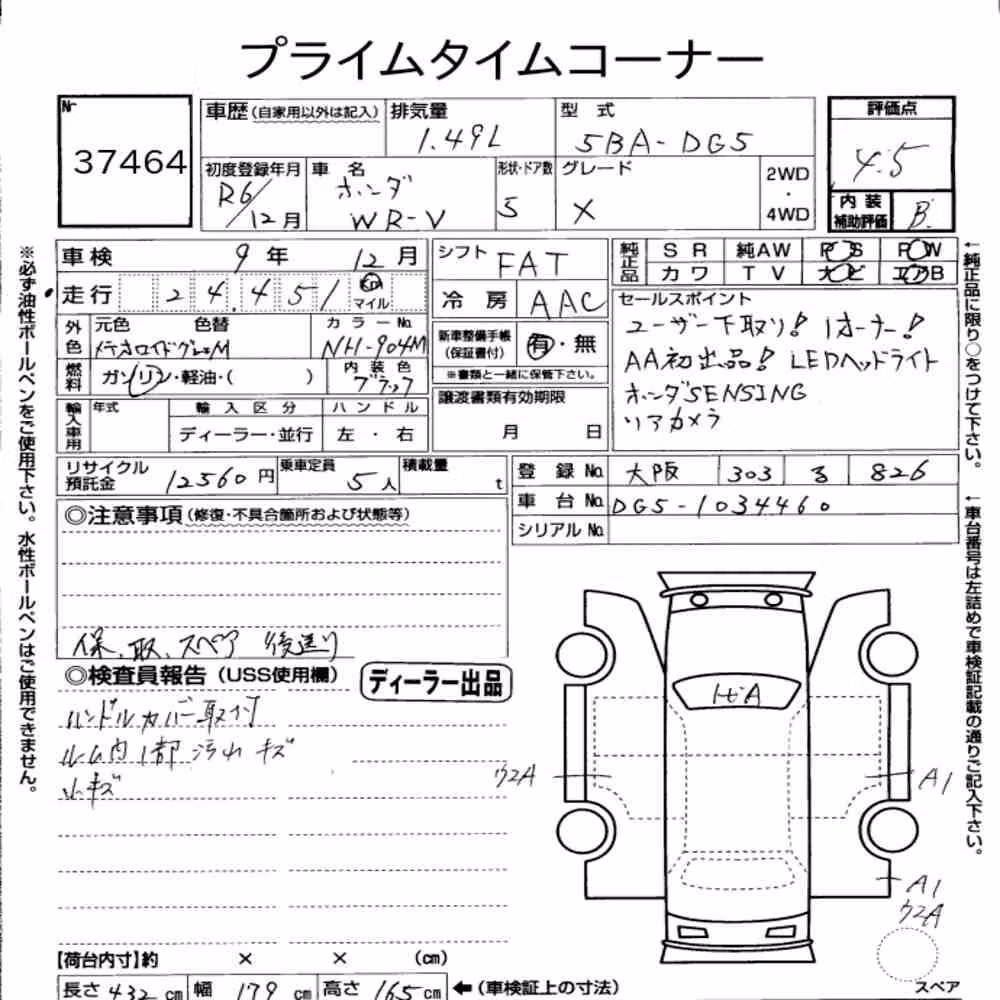 プライムタイムコーナー
Nr 37464
車歴(自家用以外は記入) 排気量 1.49L 型式 5BA-DG5 評価点 4.5
初度登録年月 R6/12月 車名 ホンダ WR-V 形状・ドア数 5 グレード X 2WD・4WD 内装補助評価 B
車検 9年 12月 シフト FAT 純正品 SR 純AW PS PW
カワ TV ナビ エアB
走行 24,451 km マイル 冷房 AAC
セールスポイント
ユーザー下取り! 1オーナー!
AA初出品! LEDヘッドライト
ホンダSENSING
リアカメラ
外色 元色 色替 カラーNo.
メテオロイドグレーM NH-904M
新車整備手帳(保証書付) 有・無
※書類と一緒に保管下さい。
燃料 ガソリン・軽油・( ) 内装色 ブラック
輸入車用 年式 輸入区分 ハンドル
ディーラー・並行 左・右
譲渡書類有効期限
月 日
リサイクル預託金 12560円 乗車定員 5人 積載量 t
登録No. 大阪 303 る 826
車台No. DG5-1034460
シリアルNo.
◎注意事項(修復・不具合箇所および状態等)
保、取、スペア 後送り
◎検査員報告(USS使用欄) ディーラー出品
ハンドルカバー取付
ルーム内1部汚れ キズ
小キズ
ヒA
ウ2A
A1
A1
ウ2A
スペア
【荷台内寸】約 × × (cm)
長さ 432 cm 幅 179 cm 高さ 165 cm ←(車検証上の寸法)
※必ず油性ボールペンをご使用下さい。水性ボールペンはご使用できません。
←純正品に限り○をつけて下さい。
←車台番号は左詰めで車検証記載の通りご記入下さい。